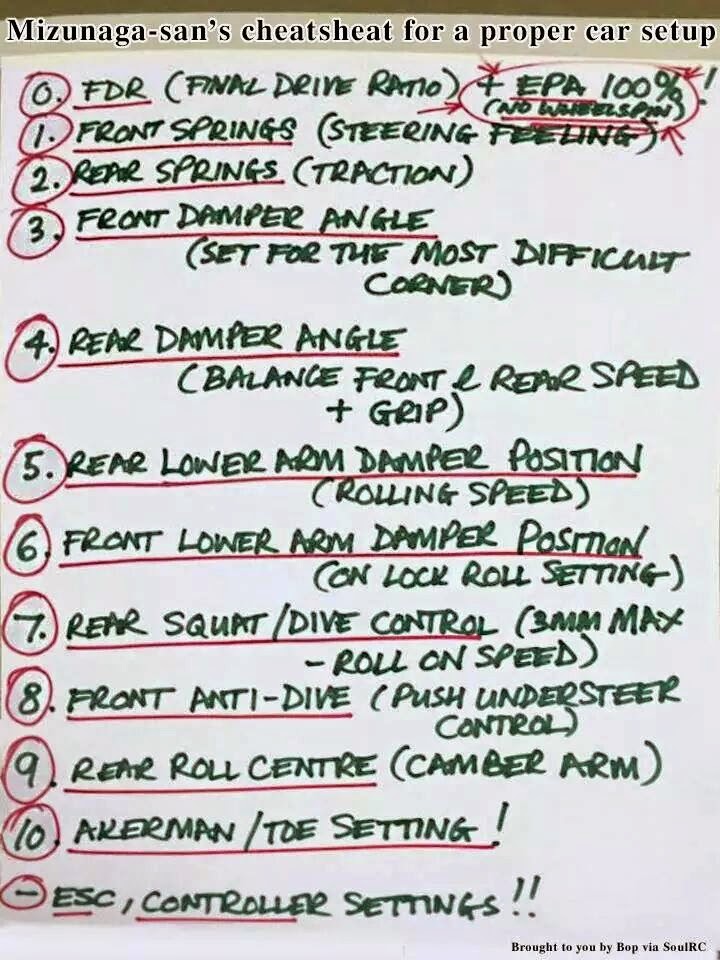 Mizunaga-san's cheatsheat for a proper car setup
0. FDR (FINAL DRIVE RATIO) + EPA 100%!
(NO WHEELSPIN)
1. FRONT SPRINGS (STEERING FEELING)
2. REAR SPRINGS (TRACTION)
3. FRONT DAMPER ANGLE
(SET FOR THE MOST DIFFICULT
CORNER)
4. REAR DAMPER ANGLE
(BALANCE FRONT & REAR SPEED
+ GRIP)
5. REAR LOWER ARM DAMPER POSITION
(ROLLING SPEED)
6. FRONT LOWER ARM DAMPER POSITION
(ON LOCK ROLL SETTING)
7. REAR SQUAT/DIVE CONTROL (3MM MAX
- ROLL ON SPEED)
8. FRONT ANTI-DIVE (PUSH UNDERSTEER
CONTROL)
9. REAR ROLL CENTRE (CAMBER ARM)
10. AKERMAN/TOE SETTING!
- ESC, CONTROLLER SETTINGS!!
Brought to you by Bop via SoulRC